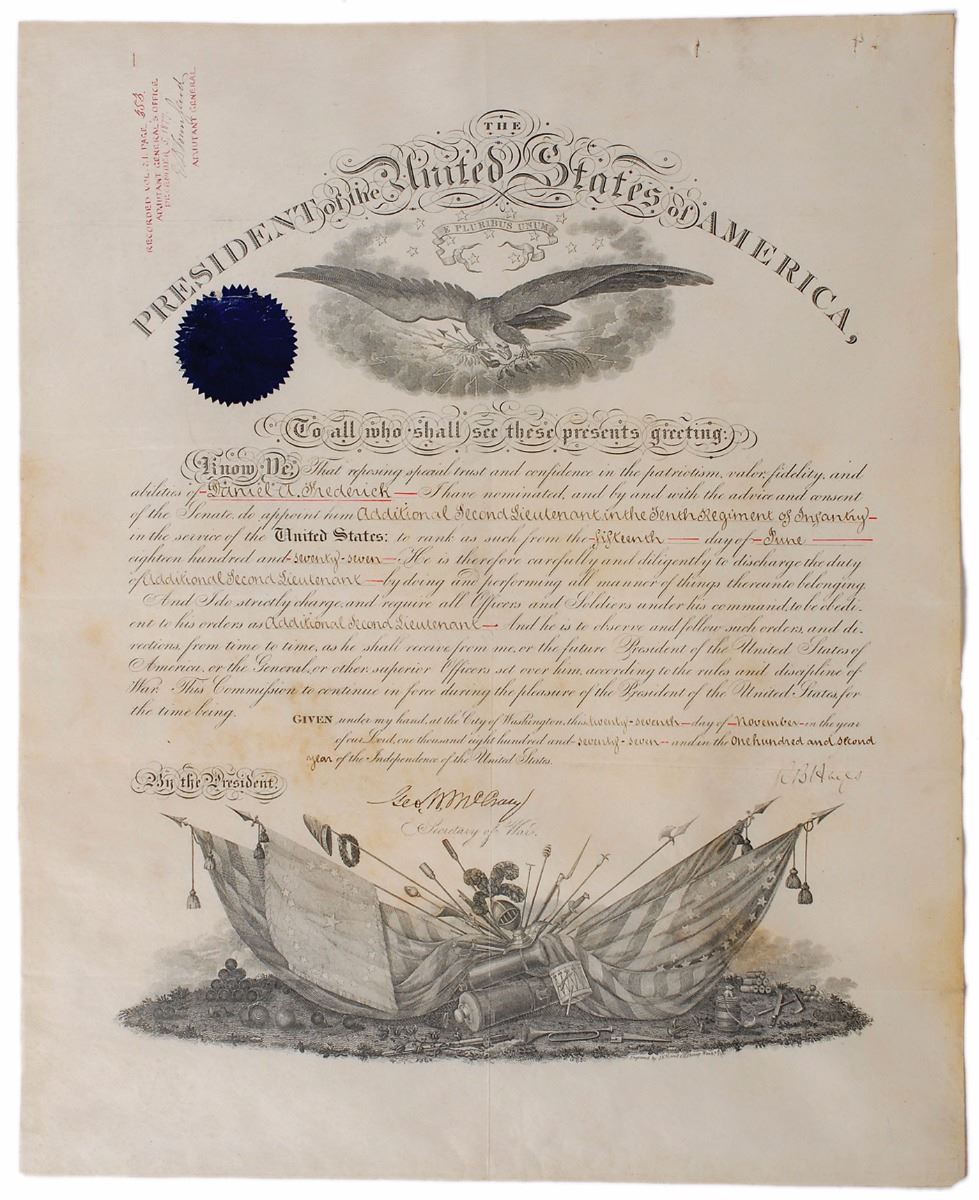 RECORDED VOL. 21. PAGE 353
ADJUTANT GENERAL'S OFFICE
ADJUTANT GENERAL.
THE
PRESIDENT of the United States of AMERICA,
E PLURIBUS UNUM
To all who shall see these presents greeting:
Know Ye, That reposing special trust and confidence in the patriotism, valor, fidelity, and
abilities of Daniel A. Frederick I have nominated, and by and with the advice and consent
of the Senate, do appoint him Additional Second Lieutenant in the Tenth Regiment of Infantry
in the service of the United States: to rank as such from the fifteenth day of June
eighteen hundred and seventy-seven He is therefore carefully and diligently to discharge the duty
of Additional Second Lieutenant by doing and performing all manner of things thereunto belonging.
And I do strictly charge, and require all Officers and Soldiers under his command, to be obedi-
ent to his orders as Additional Second Lieutenant And he is to observe and follow such orders, and di-
rections, from time to time, as he shall receive from me, or the future President of the United States of
America, or the General, or other superior Officers set over him, according to the rules and discipline of
War. This Commission to continue in force during the pleasure of the President of the United States, for
the time being.
GIVEN under my hand, at the City of Washington, this twenty-seventh day of November in the year
of our Lord, one thousand eight hundred and seventy-seven and in the One hundred and second
year of the Independence of the United States.
R B Hayes
By the President,
Geo. W. McCrary
Secretary of War.